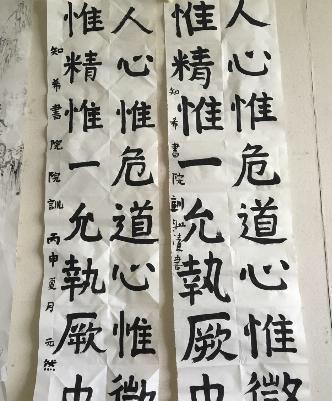 人心惟危道心惟微
惟精惟一允執厥中
知希書院訓
人心惟危道心惟微
惟精惟一允執厥中
知希書院院訓 丙申夏月 元然